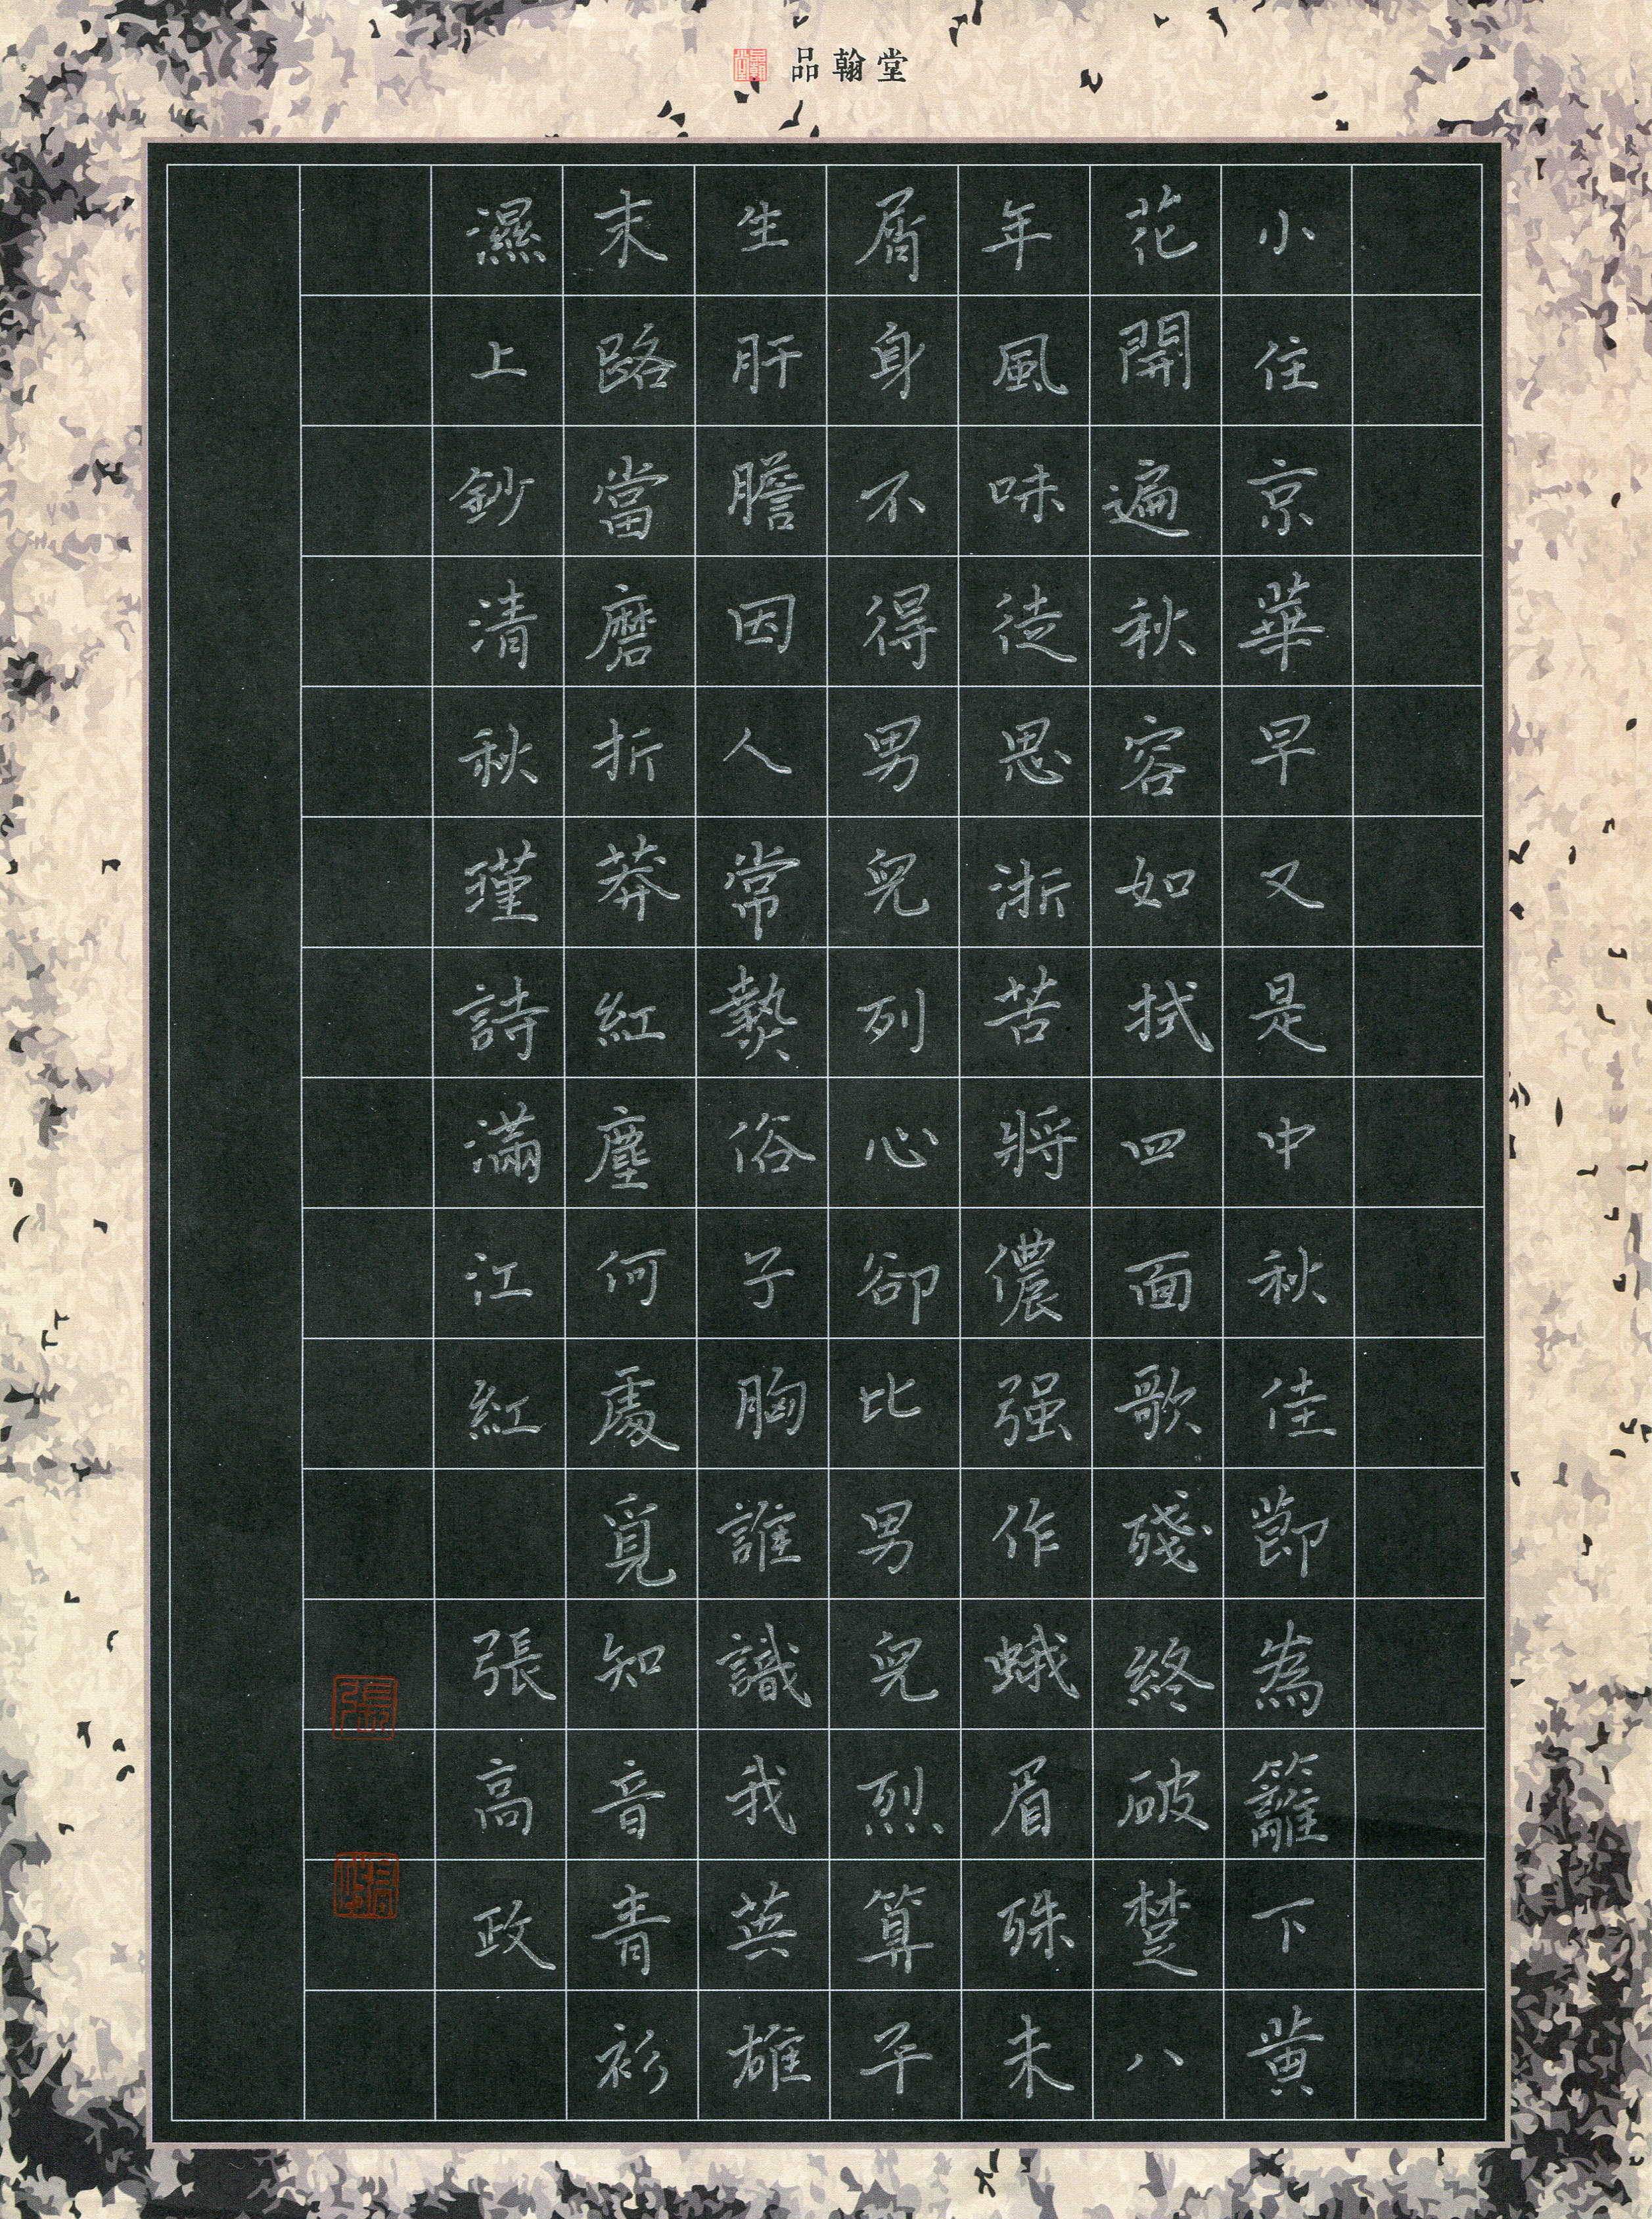 品翰堂
小住京華早又是中秋佳節為籬下黃
花開遍秋容如拭四面歌殘終破楚八
年風味徒思浙苦將儂强作蛾眉殊未
屑身不得男兒列心卻比男兒烈算平
生肝膽因人常熱俗子胸誰識我英雄
末路當磨折莽紅塵何處覓知音青衫
濕上鈔清秋瑾詩滿江紅 張高政